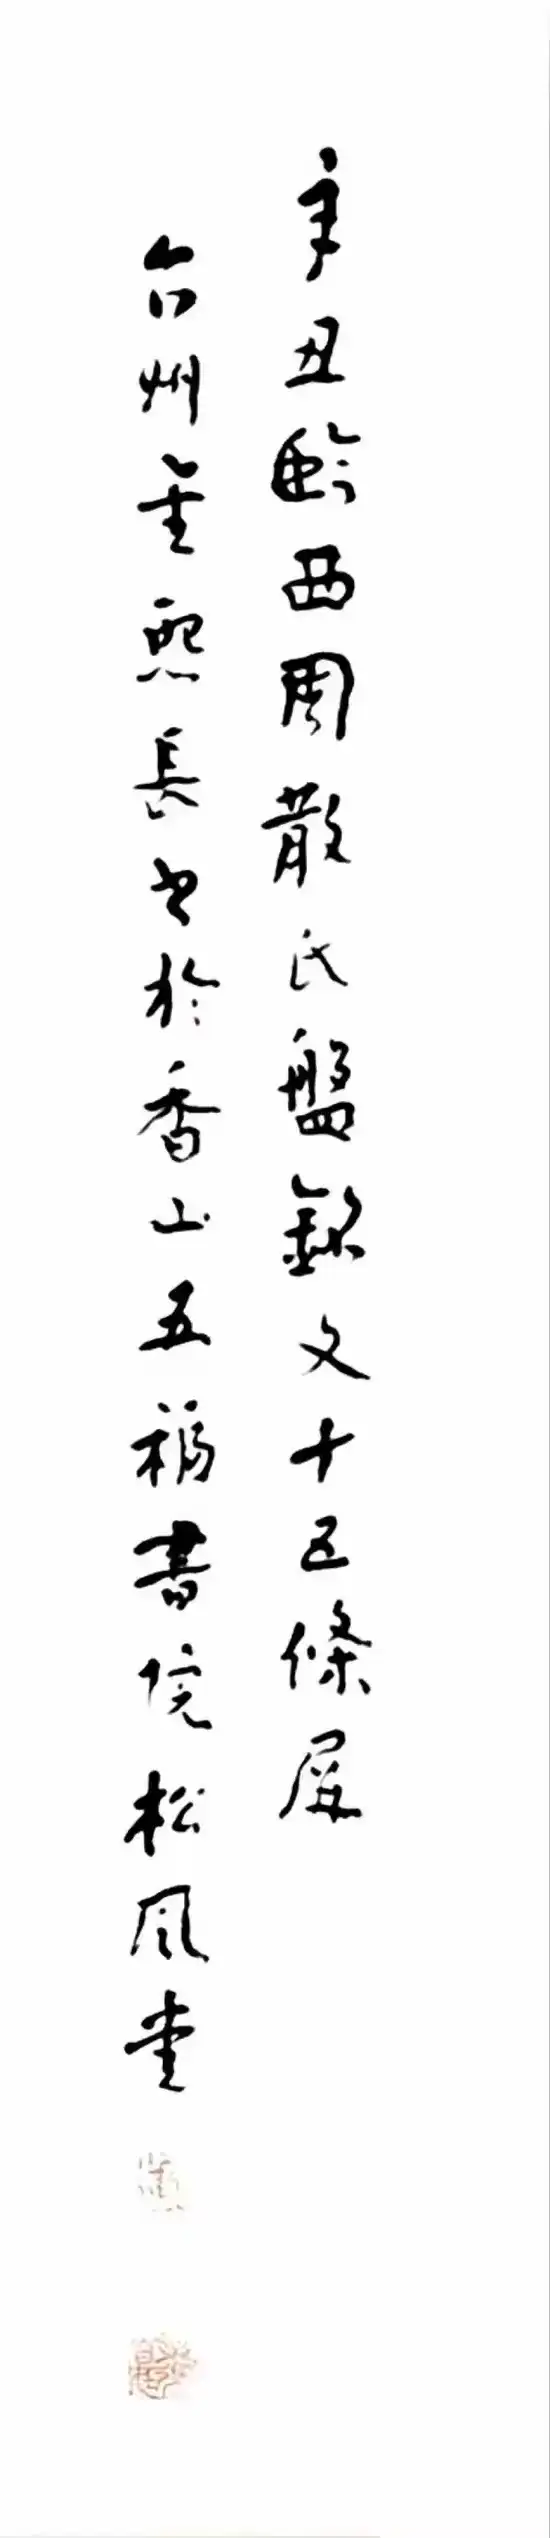 辛丑臨西周散氏盤銘文十五條屏
台州金熙長書於香山五福書院松風堂